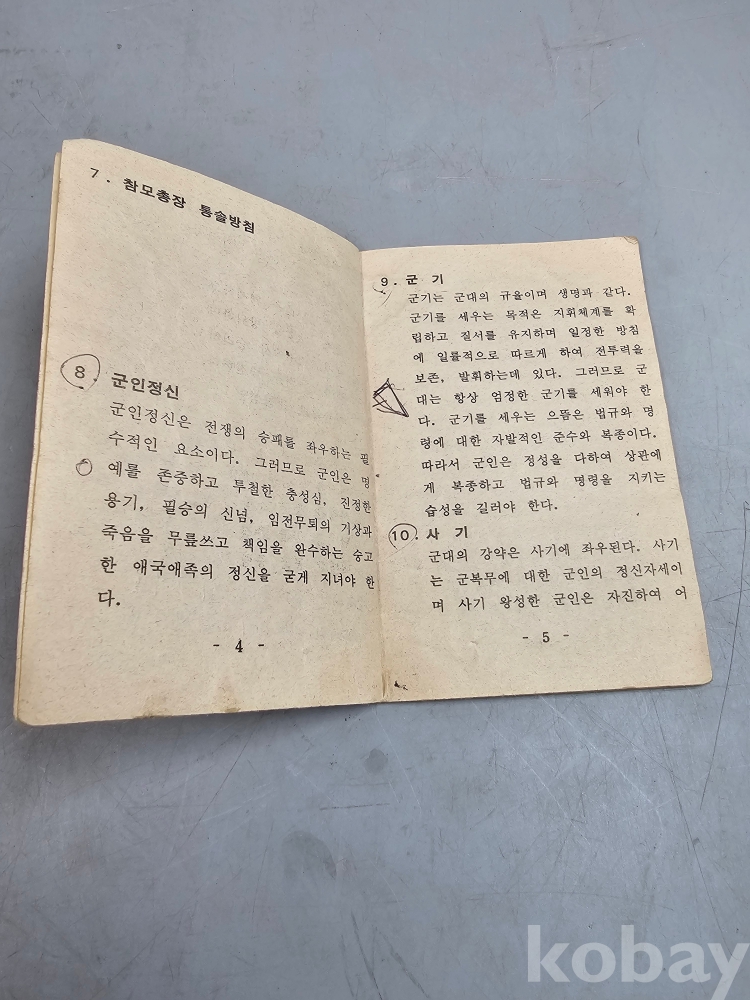 7. 참모총장 통솔방침
8 군인정신
군인정신은 전쟁의 승패를 좌우하는 필
수적인 요소이다. 그러므로 군인은 명
예를 존중하고 투철한 충성심, 진정한
용기, 필승의 신념, 임전무퇴의 기상과
죽음을 무릎쓰고 책임을 완수하는 숭고
한 애국애족의 정신을 굳게 지녀야 한
다.
- 4 -
9. 군 기
군기는 군대의 규율이며 생명과 같다.
군기를 세우는 목적은 지휘체계를 확
립하고 질서를 유지하며 일정한 방침
에 일률적으로 따르게 하여 전투력을
보존, 발휘하는데 있다. 그러므로 군
대는 항상 엄정한 군기를 세워야 한
다. 군기를 세우는 으뜸은 법규와 명
령에 대한 자발적인 준수와 복종이다.
따라서 군인은 정성을 다하여 상관에
게 복종하고 법규와 명령을 지키는
습성을 길러야 한다.
10. 사 기
군대의 강약은 사기에 좌우된다. 사기
는 군복무에 대한 군인의 정신자세이
며 사기 왕성한 군인은 자진하여 어
- 5 -
kobay